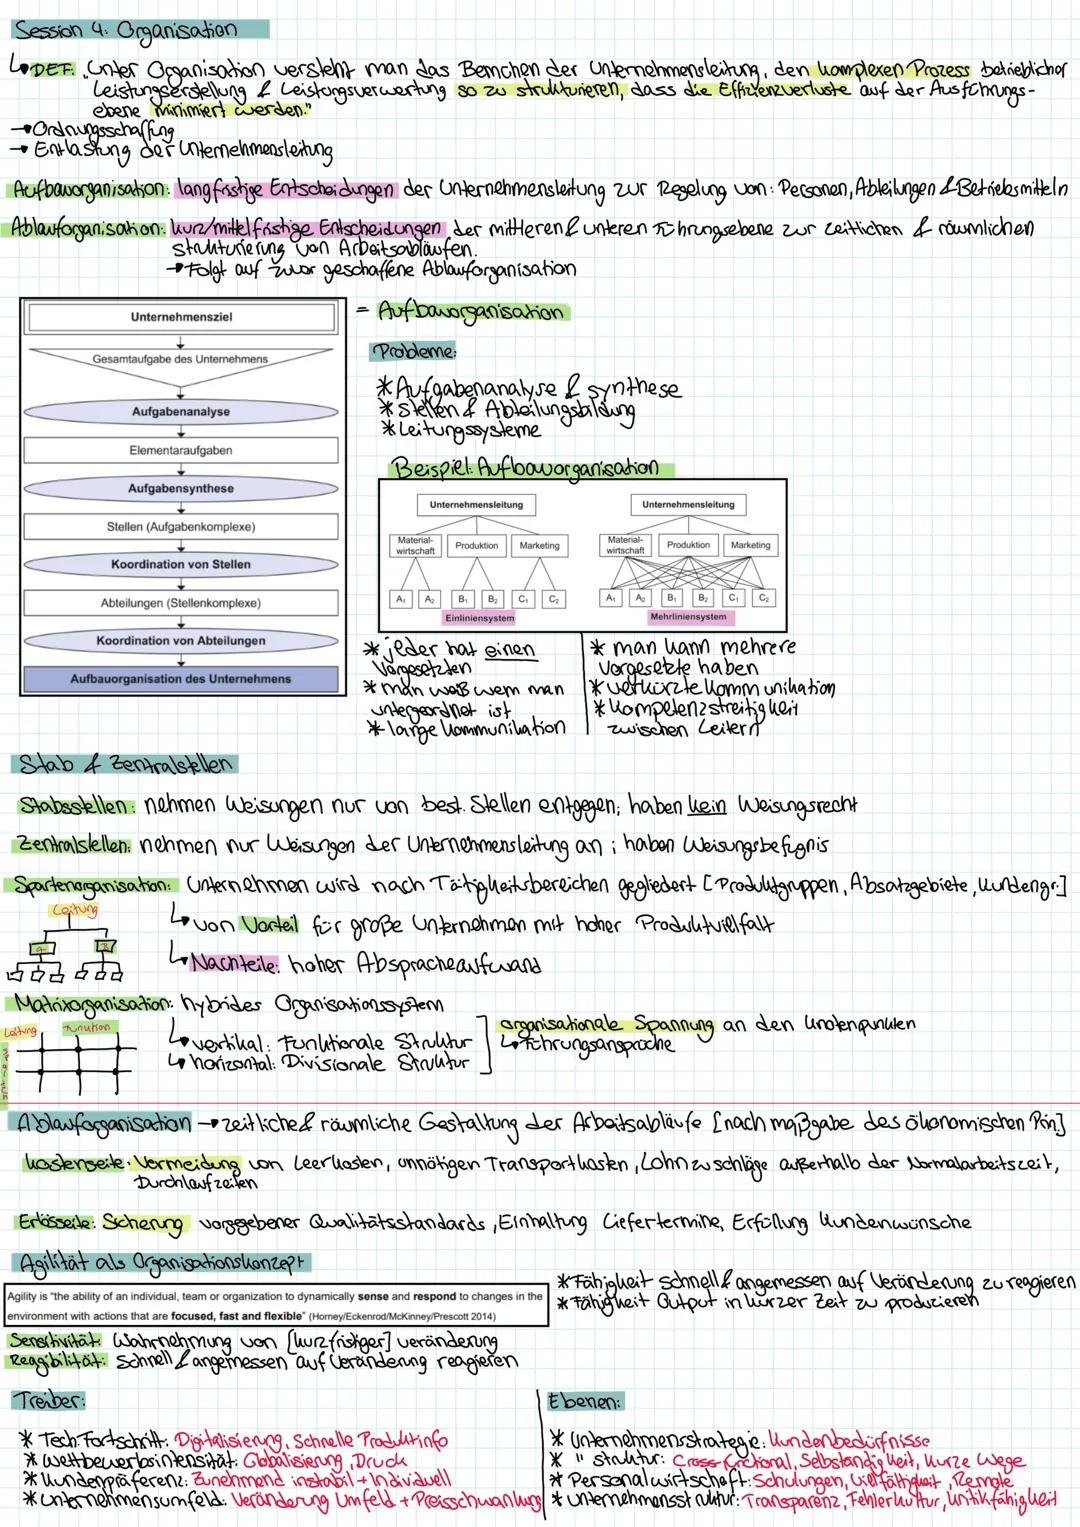 Session 4: Organisation
↳DEF: „Unter Organisation versteht man das Bemühen der Unternehmensleitung, den komplexen Prozess betrieblicher
Leistungserstellung & Leistungsverwertung so zu strukturieren, dass die Effizienzverluste auf der Ausführungs-
ebene minimiert werden."
→ Ordnungsschaffung
→ Entlastung der Unternehmensleitung
Aufbauorganisation: langfristige Entscheidungen der Unternehmensleitung zur Regelung von: Personen, Abteilungen & Betriebsmitteln
Ablauforganisation: kurz/mittelfristige Entscheidungen der mittleren & unteren Führungsebene zur zeitlichen & räumlichen
strukturierung von Arbeitsabläufen.
→ Folgt auf zuvor geschaffene Ablauforganisation
Unternehmensziel
Gesamtaufgabe des Unternehmens
Aufgabenanalyse
Elementaraufgaben
Aufgabensynthese
Stellen (Aufgabenkomplexe)
Koordination von Stellen
Abteilungen (Stellenkomplexe)
Koordination von Abteilungen
Aufbauorganisation des Unternehmens
= Aufbauorganisation
Probleme:
* Aufgabenanalyse & synthese
* Stellen & Abteilungsbildung
* Leitungssysteme
Beispiel: Aufbauorganisation
Unternehmensleitung
Material-
wirtschaft
Produktion
Marketing
A₁ A₂ B₁ B₂ C₁ C₂
Einliniensystem
Unternehmensleitung
Material-
wirtschaft
Produktion
Marketing
A₁ A₂ B₁ B₂ C₁ C₂
Mehrliniensystem
* jeder hat einen
Vorgesetzten
* man weiß wem man
untergeordnet ist
* lange Kommunikation
* man kann mehrere
Vorgesetzte haben
* verkürzte Kommunikation
* Kompetenzstreitigkeit
zwischen Leitern
Stab & Zentralstellen
Stabsstellen: nehmen Weisungen nur von best. Stellen entgegen; haben kein Weisungsrecht
Zentralstellen: nehmen nur Weisungen der Unternehmensleitung an; haben Weisungsbefugnis
Spartenorganisation: Unternehmen wird nach Tätigkeitsbereichen gegliedert [Produktgruppen, Absatzgebiete, Kundengr.]
Leitung
A B
↳ von Vorteil für große Unternehmen mit hoher Produktvielfalt
↳ Nachteile: hoher Abspracheaufwand
Matrixorganisation: hybrides Organisationssystem
Leitung Funktion
↳ vertikal: Funktionale Struktur
↳ horizontal: Divisionale Struktur
organisationale Spannung an den Knotenpunkten
↳ Führungsansprüche
Ablauforganisation → zeitliche & räumliche Gestaltung der Arbeitsabläufe [nach maßgabe des ökonomischen Prin.]
Kostenseite: Vermeidung von Leerkosten, unnötigen Transportkosten, Lohnzuschläge außerhalb der Normalarbeitszeit,
Durchlaufzeiten
Erlösseite: Sicherung vorgegebener Qualitätsstandards, Einhaltung Liefertermine, Erfüllung Kundenwünsche
Agilität als Organisationskonzept
Agility is "the ability of an individual, team or organization to dynamically sense and respond to changes in the
environment with actions that are focused, fast and flexible" (Horney/Eckenrod/McKinney/Prescott 2014)
* Fähigkeit schnell & angemessen auf Veränderung zu reagieren
* Fähigkeit Output in kurzer Zeit zu produzieren
Sensitivität: Wahrnehmung von [kurzfristiger] veränderung
Reagibilität: Schnell & angemessen auf Veränderung reagieren
Treiber:
* Tech. Fortschritt: Digitalisierung, Schnelle Produktinfo
* Wettbewerbsintensität: Globalisierung, Druck
* Kundenpräferenz: Zunehmend instabil + Individuell
* Unternehmensumfeld: Veränderung Umfeld + Preisschwankung
Ebenen:
* Unternehmensstrategie: Kundenbedürfnisse
* " struktur: Cross-Functional, Selbständigkeit, Kurze Wege
* Personalwirtschaft: Schulungen, Vielfältigkeit, Remote
* Unternehmensstruktur: Transparenz, Fehlerkultur, Kritikfähigkeit